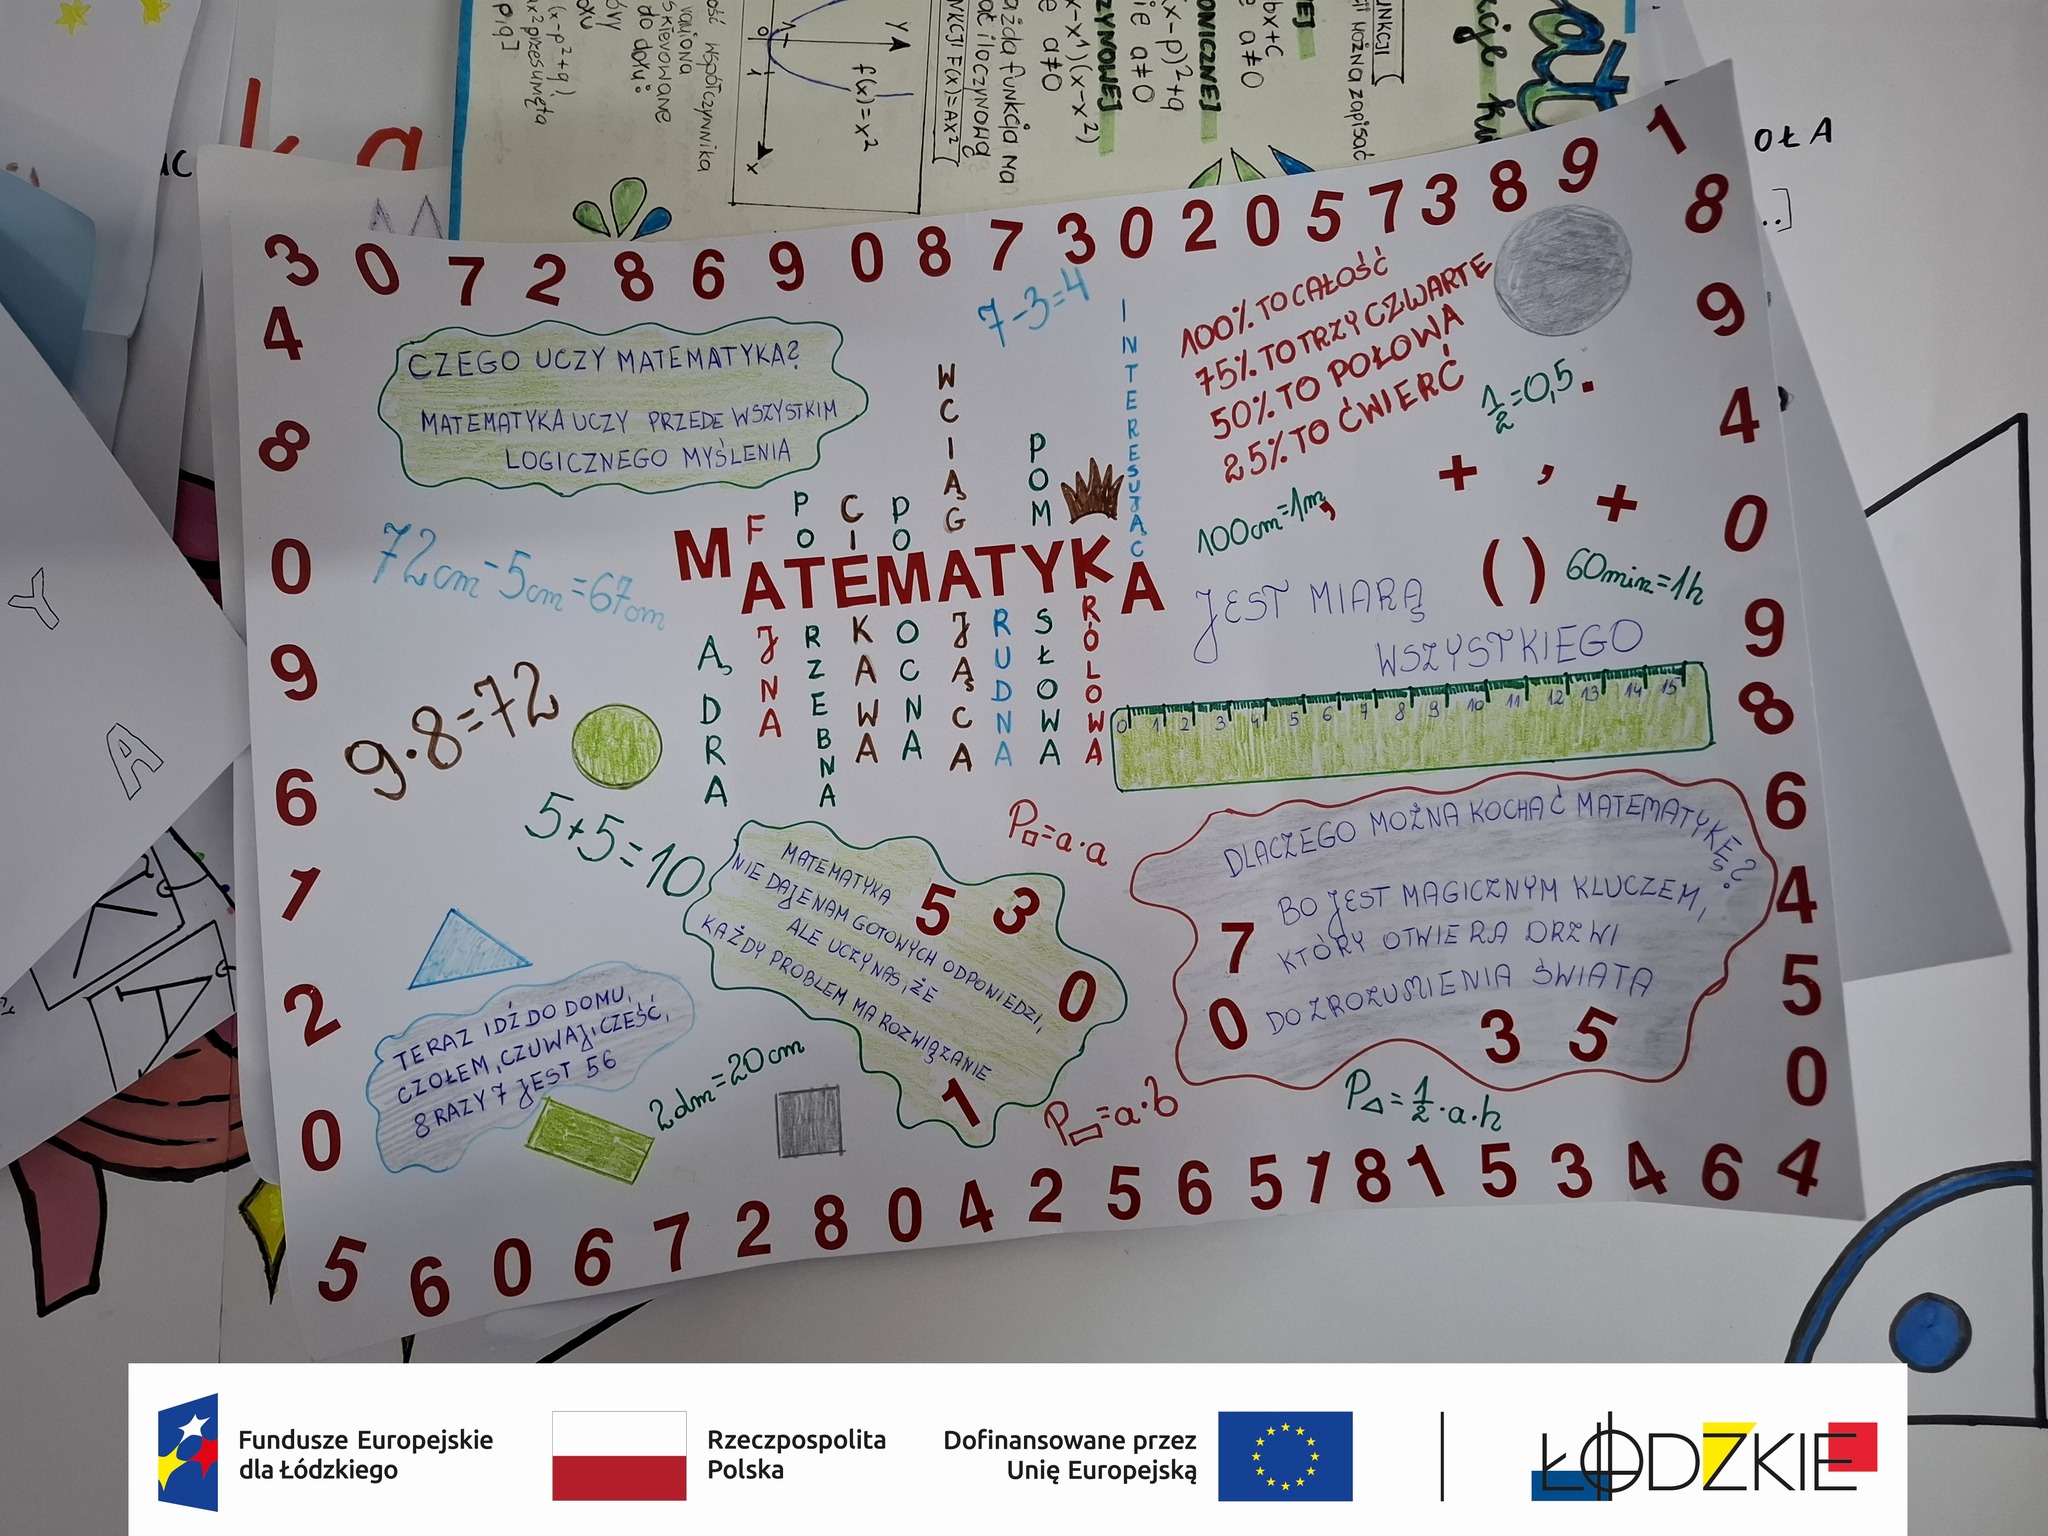 ść współczynnika
f(x)=x²
Y
x
0
1
1
NKCJI F(X)=AX²
ażda funkcja ma
(x-x1)(x-x2)
e a≠0
ZYNOWEJ
x-p)²+q
ie a≠0
ONICZNEJ
bx+c
e a≠0
NEJ
można zapisać
UNKCJI
skierowane
do dołu:
OŁA
..]
Y
A
3 0 7 2 8 6 9 0 8 7 3 0 2 0 5 7 3 8 9 1
4 8 0 9 6 1 2 0
8 9 4 0 9 8 6 4 5 0
CZEGO UCZY MATEMATYKA?
MATEMATYKA UCZY PRZEDE WSZYSTKIM
LOGICZNEGO MYŚLENIA
7-3=4
100% TO CAŁOŚĆ
75% TO TRZY CZWARTE
50% TO POŁOWA
25% TO ĆWIERĆ
1/2=0,5
.
+ , +
100cm=1m
,
( )
60min=1h
72cm-5cm=67cm
MATEMATYKA
MĄDRA
FAJNA
POTRZEBNA
CIEKAWA
POMOCNA
WCIĄGAJĄCA
TRUDNA
POMYSŁOWA
KRÓLOWA
INTERESUJĄCA
JEST MIARĄ
WSZYSTKIEGO
0 1 2 3 4 5 6 7 8 9 10 11 12 13 14 15
9·8=72
5+5=10
P□=a·a
MATEMATYKA
NIE DAJE NAM GOTOWYCH ODPOWIEDZI,
ALE UCZY NAS, ŻE
KAŻDY PROBLEM MA ROZWIĄZANIE
5 3
0
1
DLACZEGO MOŻNA KOCHAĆ MATEMATYKĘ?
BO JEST MAGICZNYM KLUCZEM,
KTÓRY OTWIERA DRZWI
DO ZROZUMIENIA ŚWIATA
7
0
3 5
TERAZ IDŹ DO DOMU,
CZOŁEM, CZUWAJ, CZEŚĆ,
8 RAZY 7 JEST 56
2dm=20cm
P▭=a·b
P△=1/2·a·h
5 6 0 6 7 2 8 0 4 2 5 6 5 1 8 1 5 3 4 6 4
Fundusze Europejskie
dla Łódzkiego
Rzeczpospolita
Polska
Dofinansowane przez
Unię Europejską
ŁÓDZKIE